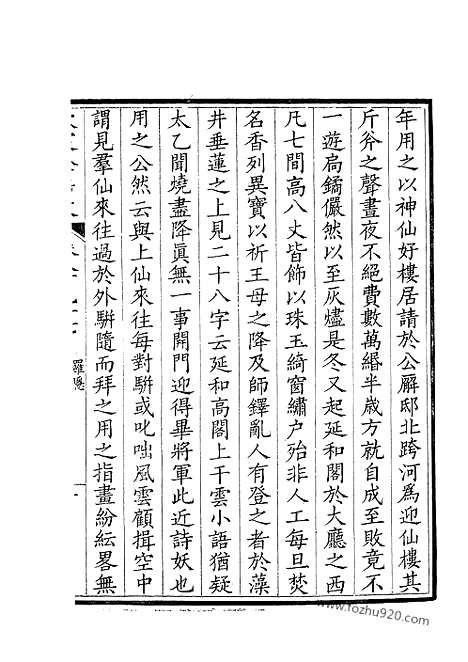 年用之以神仙好樓居請於公廨邸北跨河爲迎仙樓其
斤斧之聲晝夜不絕費數萬緡半歲方就自成至敗竟不
一遊扃鐍儼然以至灰燼是冬又起延和閣於大廳之西
凡七間高八丈皆飾以珠玉綺窗繡户殆非人工每旦焚
名香列異寶以祈王母之降及師鐸亂人有登之者於藻
井垂蓮之上見二十八字云延和高閣上干雲小語猶疑
太乙聞燒盡降眞無一事開門迎得畢將軍此近詩妖也
用之公然云與上仙來往每對駢或叱咄風雲顧揖空中
謂見羣仙來往過於外駢隨而拜之用之指畫紛紜畧無
羅隱
www.fozhu920.com